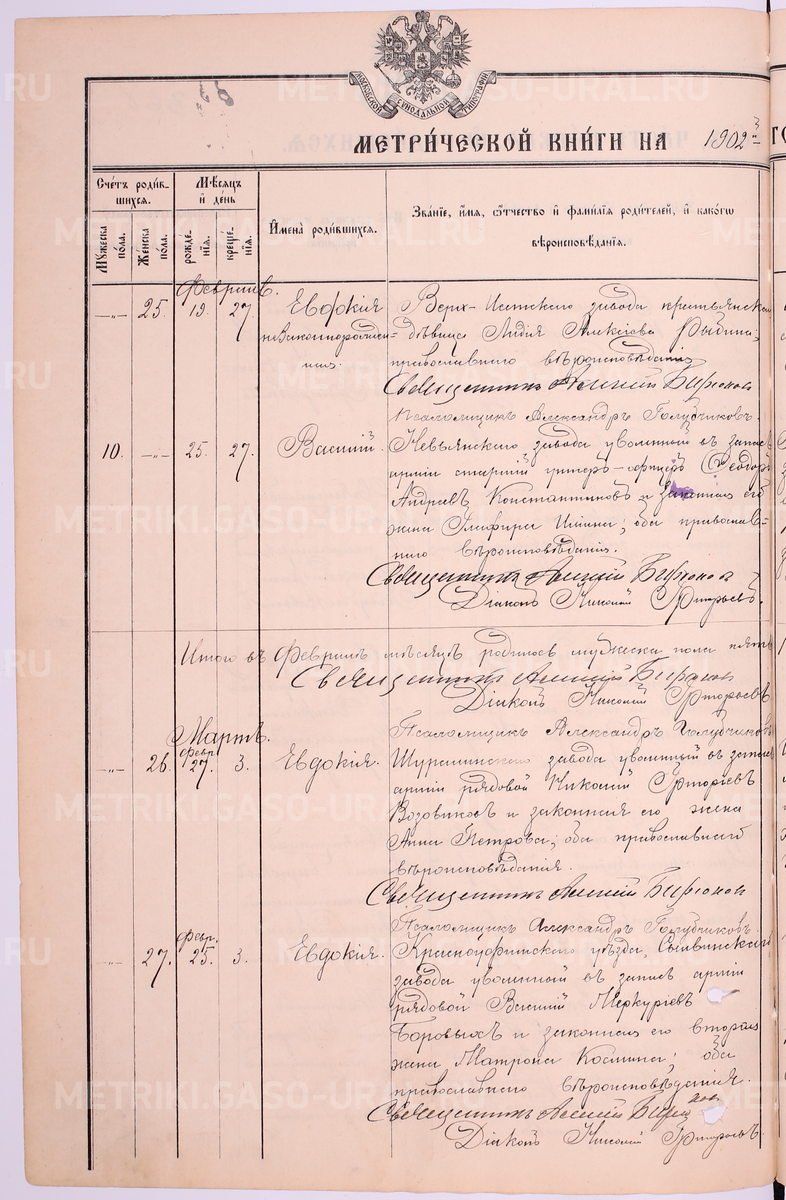 МОСКОВСКОЙ СѴНОДАЛЬНОЙ ТИПОГРАФІИ
МЕТРИ́ЧЕСКОЙ КНИ́ГИ НА 1902
Сче́тъ роди́в-
шихся.
Мѣ́сяцъ
и҆ де́нь
Му́жеска
по́ла.
Же́нска
по́ла.
рожде́-
нїя.
креще́-
нїя.
И҆мена̀ роди́вшихся.
Зва́нїе, и҆́мя, ѻ҆́тчество и҆ фами́лїя роди́телей, и҆ како́гѡ
вѣроисповѣ́данїя.
Февраль.
—„— 25. 19. 27. Евдокія Верх-Исетскаго завода крестьянская
незаконнорожден- дѣвица Лидія Алексіева Рыбина;
ная. православнаго вѣроисповѣданія
Священникъ Алексій Бирюков
Псаломщикъ Александръ Голубчиковъ.
10. —„— 25. 27. Василій. Невьянскаго завода уволенный въ запасъ
арміи старшій унтеръ-офицеръ Ѳеодоръ
Андреевъ Константиновъ и законная его
жена Глафира Ильина; оба православ-
наго вѣроисповѣданія.
Священникъ Алексій Бирюков
Діаконъ Николай Григорьевъ.
Итого въ Февралѣ мѣсяцѣ родилось мужеска пола пять
Священникъ Алексій Бирюков
Діаконъ Николай Григорьевъ
Псаломщикъ Александръ Голубчиковъ
Мартъ.
—„— 26. Февр. 27. 3. Евдокія. Шуралинскаго завода уволенный въ запасъ
арміи рядовой Николай Григоріевъ
Возовиковъ и законная его жена
Анна Петрова; оба православнаго
вѣроисповѣданія.
Священникъ Алексій Бирюков
Псаломщикъ Александръ Голубчиковъ.
—„— 27. Февр. 25. 3. Евдокія. Красноуфимскаго уѣзда, Сылвинскаго
завода уволенный въ запасъ арміи
рядовой Василій Меркуріевъ
Боровыхъ и законная его вторая
жена Матрона Космина; оба
православнаго вѣроисповѣданія.
Священникъ Алексій Бирюков
Діаконъ Николай Григорьевъ.
METRIKI.GASO-URAL.RU